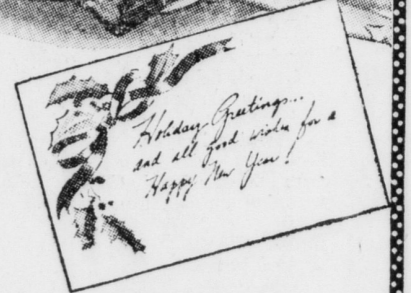 Holiday Greetings...
and all good wishes for a
Happy New Year!